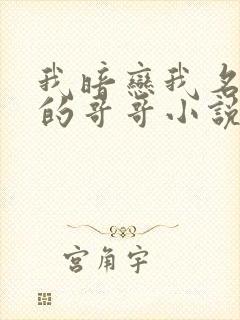 我暗戀我名
的哥哥小說
宮角宇